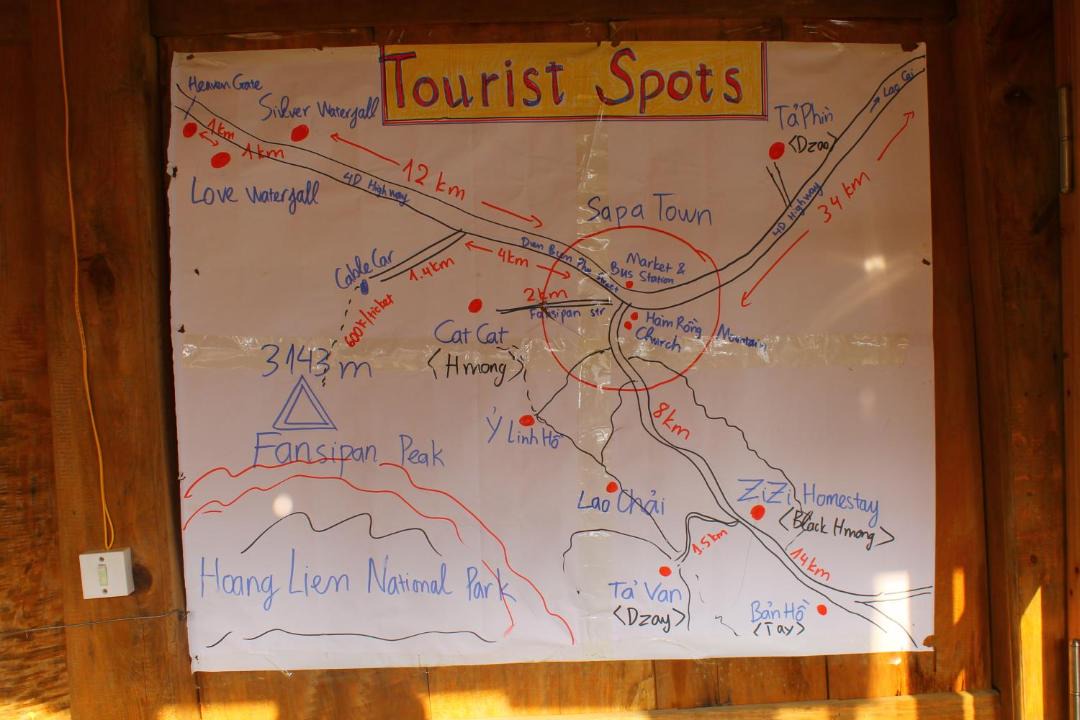 Tourist Spots
Heaven Gate
Silver Waterfall
1km
1km
Love Waterfall
12 km
4D Highway
Lao Cai
Tả Phìn
<Dzao>
4D Highway
34 km
Sapa Town
Dien Bien Phu Street
Market &
Bus Station
4km
Cable Car
1.4km
600k/ticket
2km
Fansipan str
Hàm Rồng Mountain
Church
Cat Cat
<Hmong>
3143 m
Fansipan Peak
Ý Linh Hồ
8km
Lao Chải
ZiZi Homestay
<Black Hmong>
1.5km
14km
Hoang Lien National Park
Tả Van
<Dzay>
Bản Hồ
<Tay>